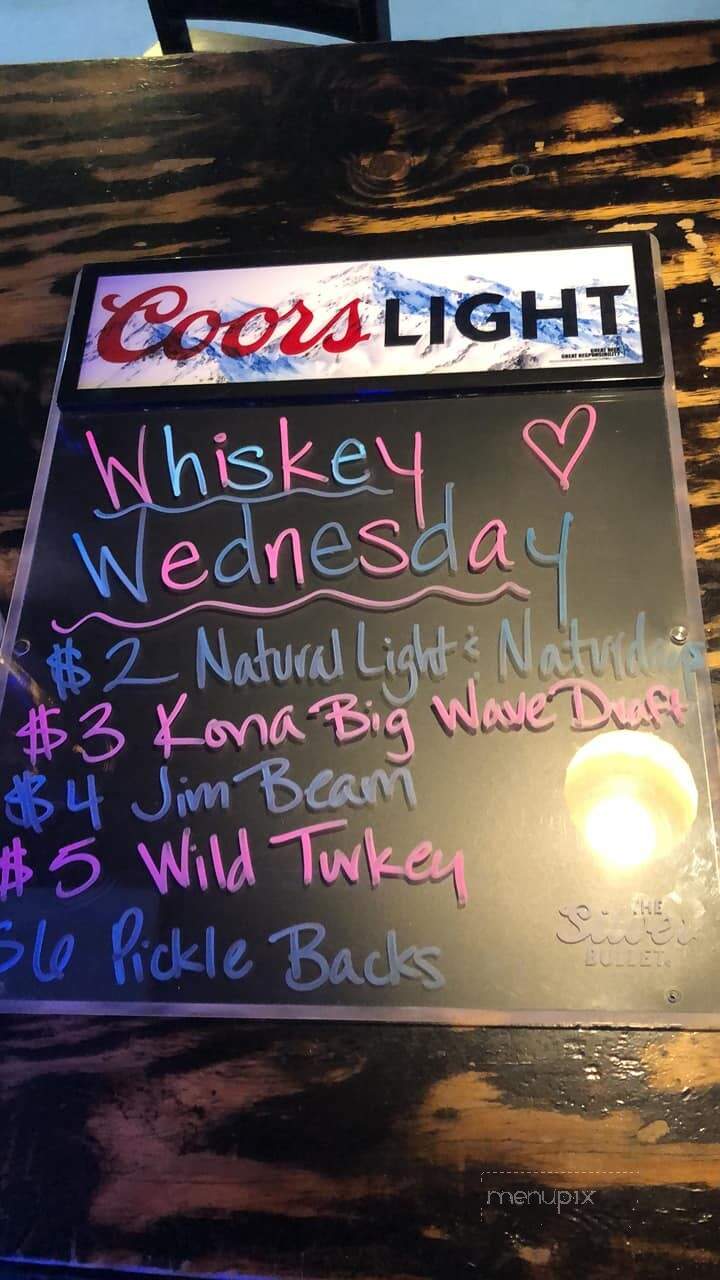 Coors LIGHT
GREAT BEER
GREAT RESPONSIBILITY
Whiskey
Wednesday
$2 Natural Light & Naturdays
$3 Kona Big Wave Draft
$4 Jim Beam
$5 Wild Turkey
$6 Pickle Backs
THE
Silver
BULLET.
menupix